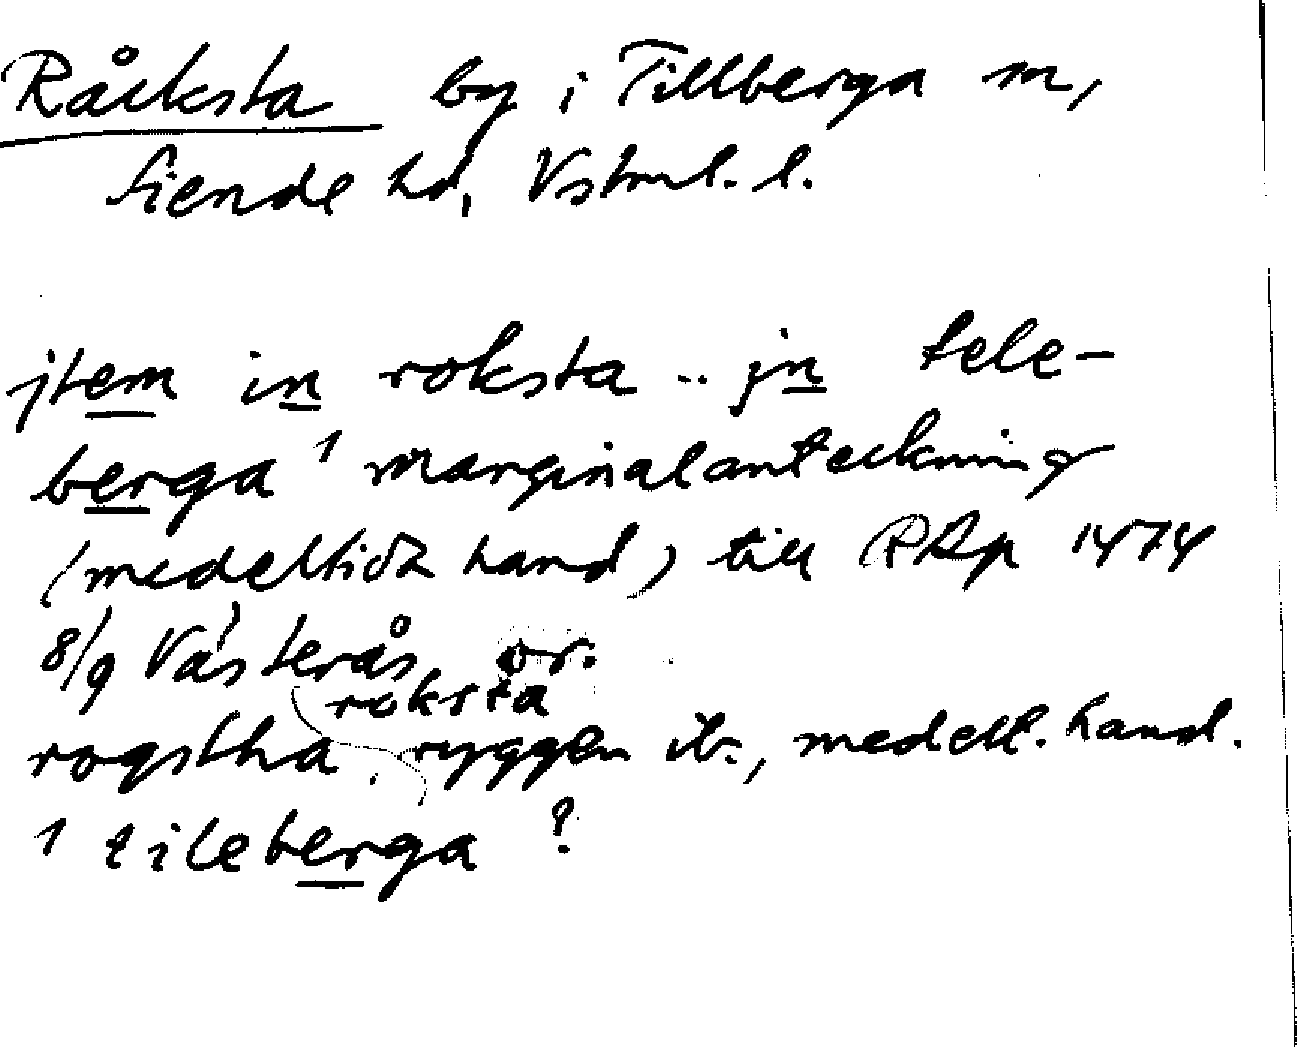 Råcksta by i Tillberga sn,
Siende hd, Vstml. l.
jtem in roksta .. jn tele-
berga 1 marginalanteckning
(medeltida hand) till RAp 1474
8/9 Västerås or.
roksta
rogstha, ryggen ib., medelt. hand.
1 tileberga ?